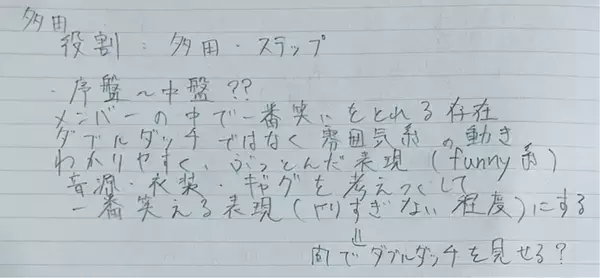 多田
役割：多田・スラップ
・序盤〜中盤??
メンバーの中で一番笑いをとれる存在
ダブルダッチではなく雰囲気系の動き
わかりやすく、ぶっとんだ表現(funny系)
音源・衣装・ギグを考えつくして
一番笑える表現(やりすぎない程度)にする
⇓
内でダブルダッチを見せる？